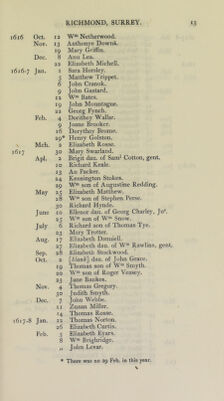 RICHMOND, SURREY. 13
1616 Oct. 12 Wm Netherwood.
Nov. 13 Anthonye Downä.
19 Mary Griffin.
Dec. 8 Ann Lea.
22 Elizabeth Michell.
1616-7 Jan. 1 Sara Horsley.
5 Matthew Trippet.
6 John Cranok.
9 John Gastard.
12 Wm Bates.
19 John Mountague.
22 Georg Fynch.
Feb. 4 Dorothey Wallar.
9 Joane Brooker.
16 Dorythey Brome.
29* Henry Golston.
Mch. 2 Elizabeth Rosse.
1617 30 Mary Swarland.
Apl. 2 Brigit dau. of Saml Cotton, gent.
20 Richard Keale.
23 An Facker.
24 Kensington Stokes.
29 Wm son of Augustine Redding.
May 25 Elizabeth Matthew.
28 Wm son of Stephen Perse.
30 Richard Hynde.
June 10 Ellenor dau. of Georg Charley, Jur.
5 Wm son of Wm Snow.
July 6 Richard son of Thomas Tye.
23 Mary Trotter.
Aug. 17 Elizabeth
27 Elizabeth dau. of Wm Rawlins, gent.
Sep. 28 Elizabeth Stockwood.
Oct. 2 [blank] dau. of John Grave.
19 Thomas son of Wm Smyth.
20 Wm son of Roger Veasey.
23 Jane Bankes.
Nov. 4 Thomas Gregory.
30 Judith Smyth.
Dec. 7 John Webbe.
11 Zusan Miller.
14 Thomas Rosse.
1617-8 Jan. 22 Thomas Norton.
26 Elizabeth Curtis.
Feb. 5 Elizabeth Eyars.
8 Wm Brighridge.
„ John Levar.
* There was no 29 Feb. in this year.